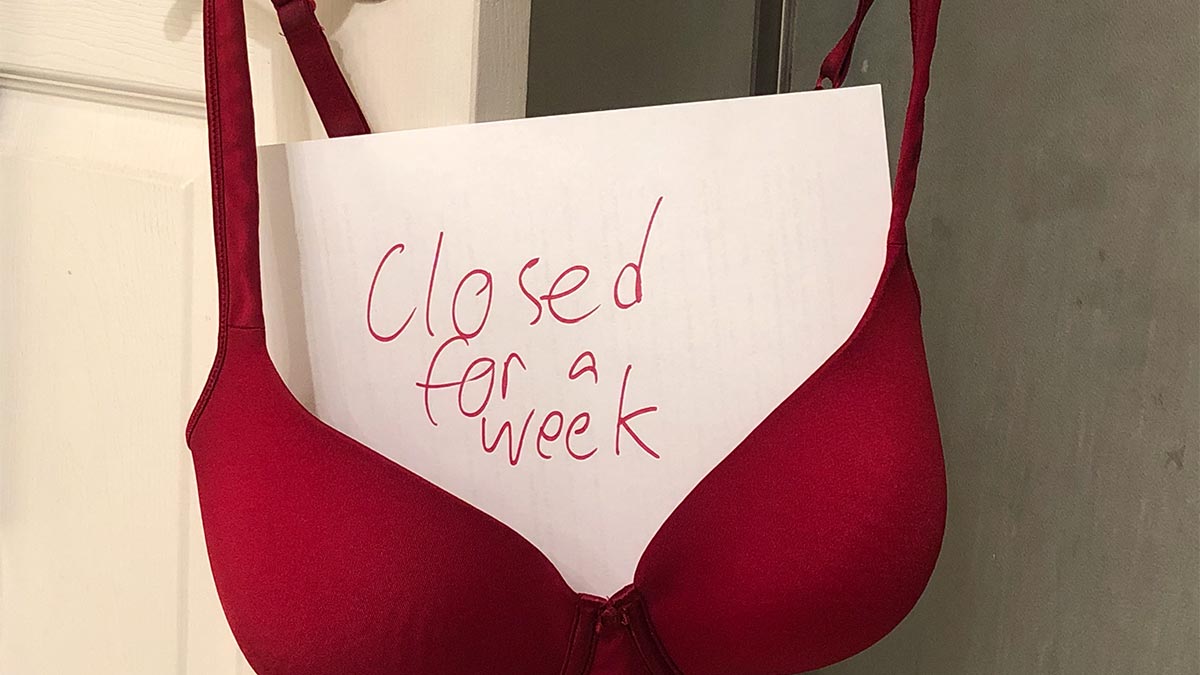 Closed
for a
week